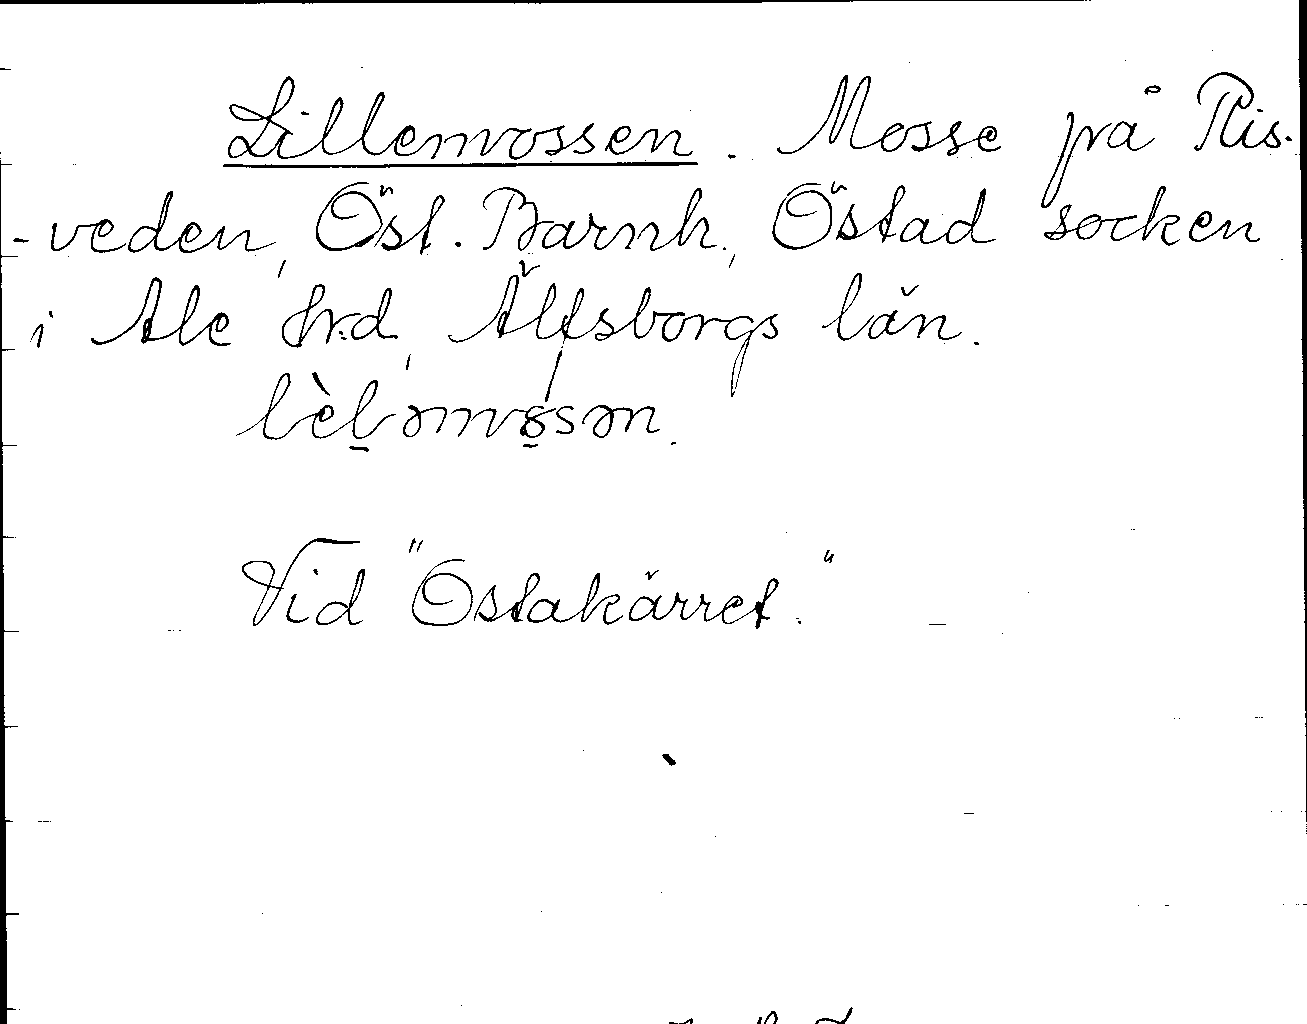 Lillemossen. Mosse på Ris-
-veden, Öst. Barnh., Östad socken
i Ale hrd, Älfsborgs län.
lèl̠əmo̠sən.
Vid "Ostakärret."